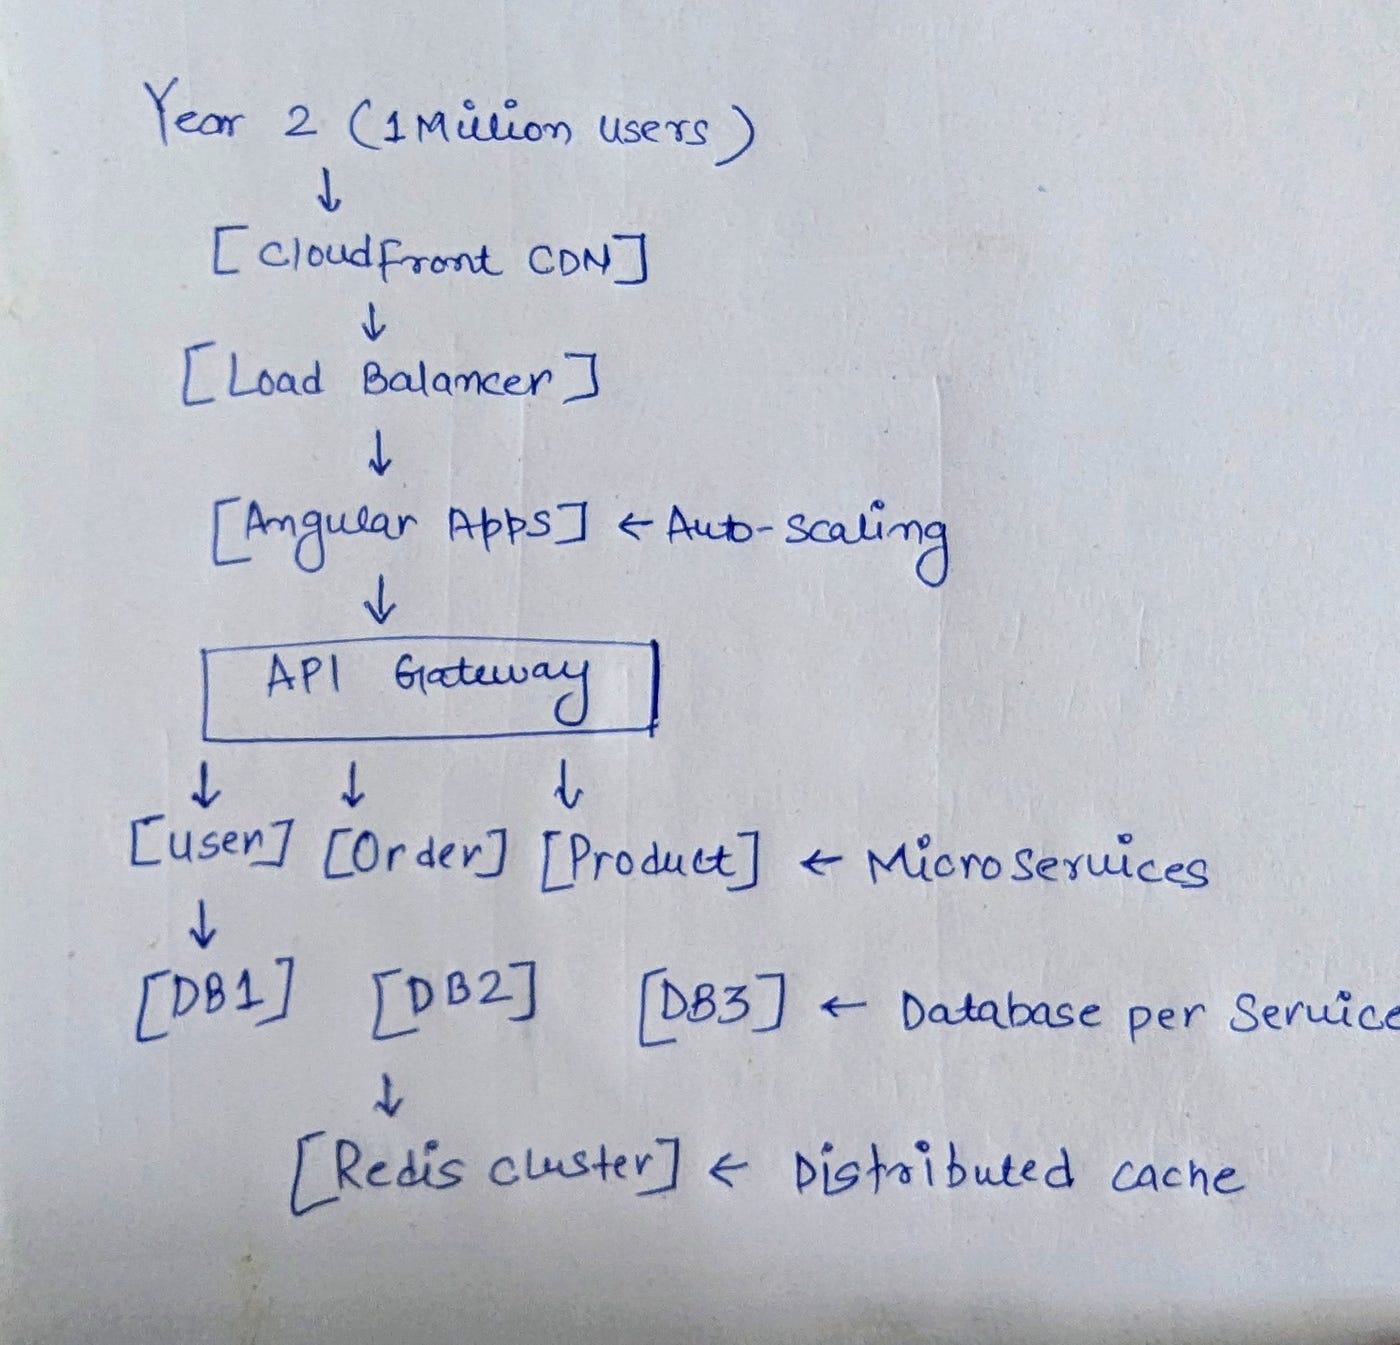 Year 2 (1 Million users)
↓
[Cloudfront CDN]
↓
[Load Balancer]
↓
[Angular Apps] ← Auto-scaling
↓
API Gateway
↓ ↓ ↓
[user] [Order] [Product] ← Microservices
↓
[DB1] [DB2] [DB3] ← Database per Service
↓
[Redis cluster] ← Distributed cache